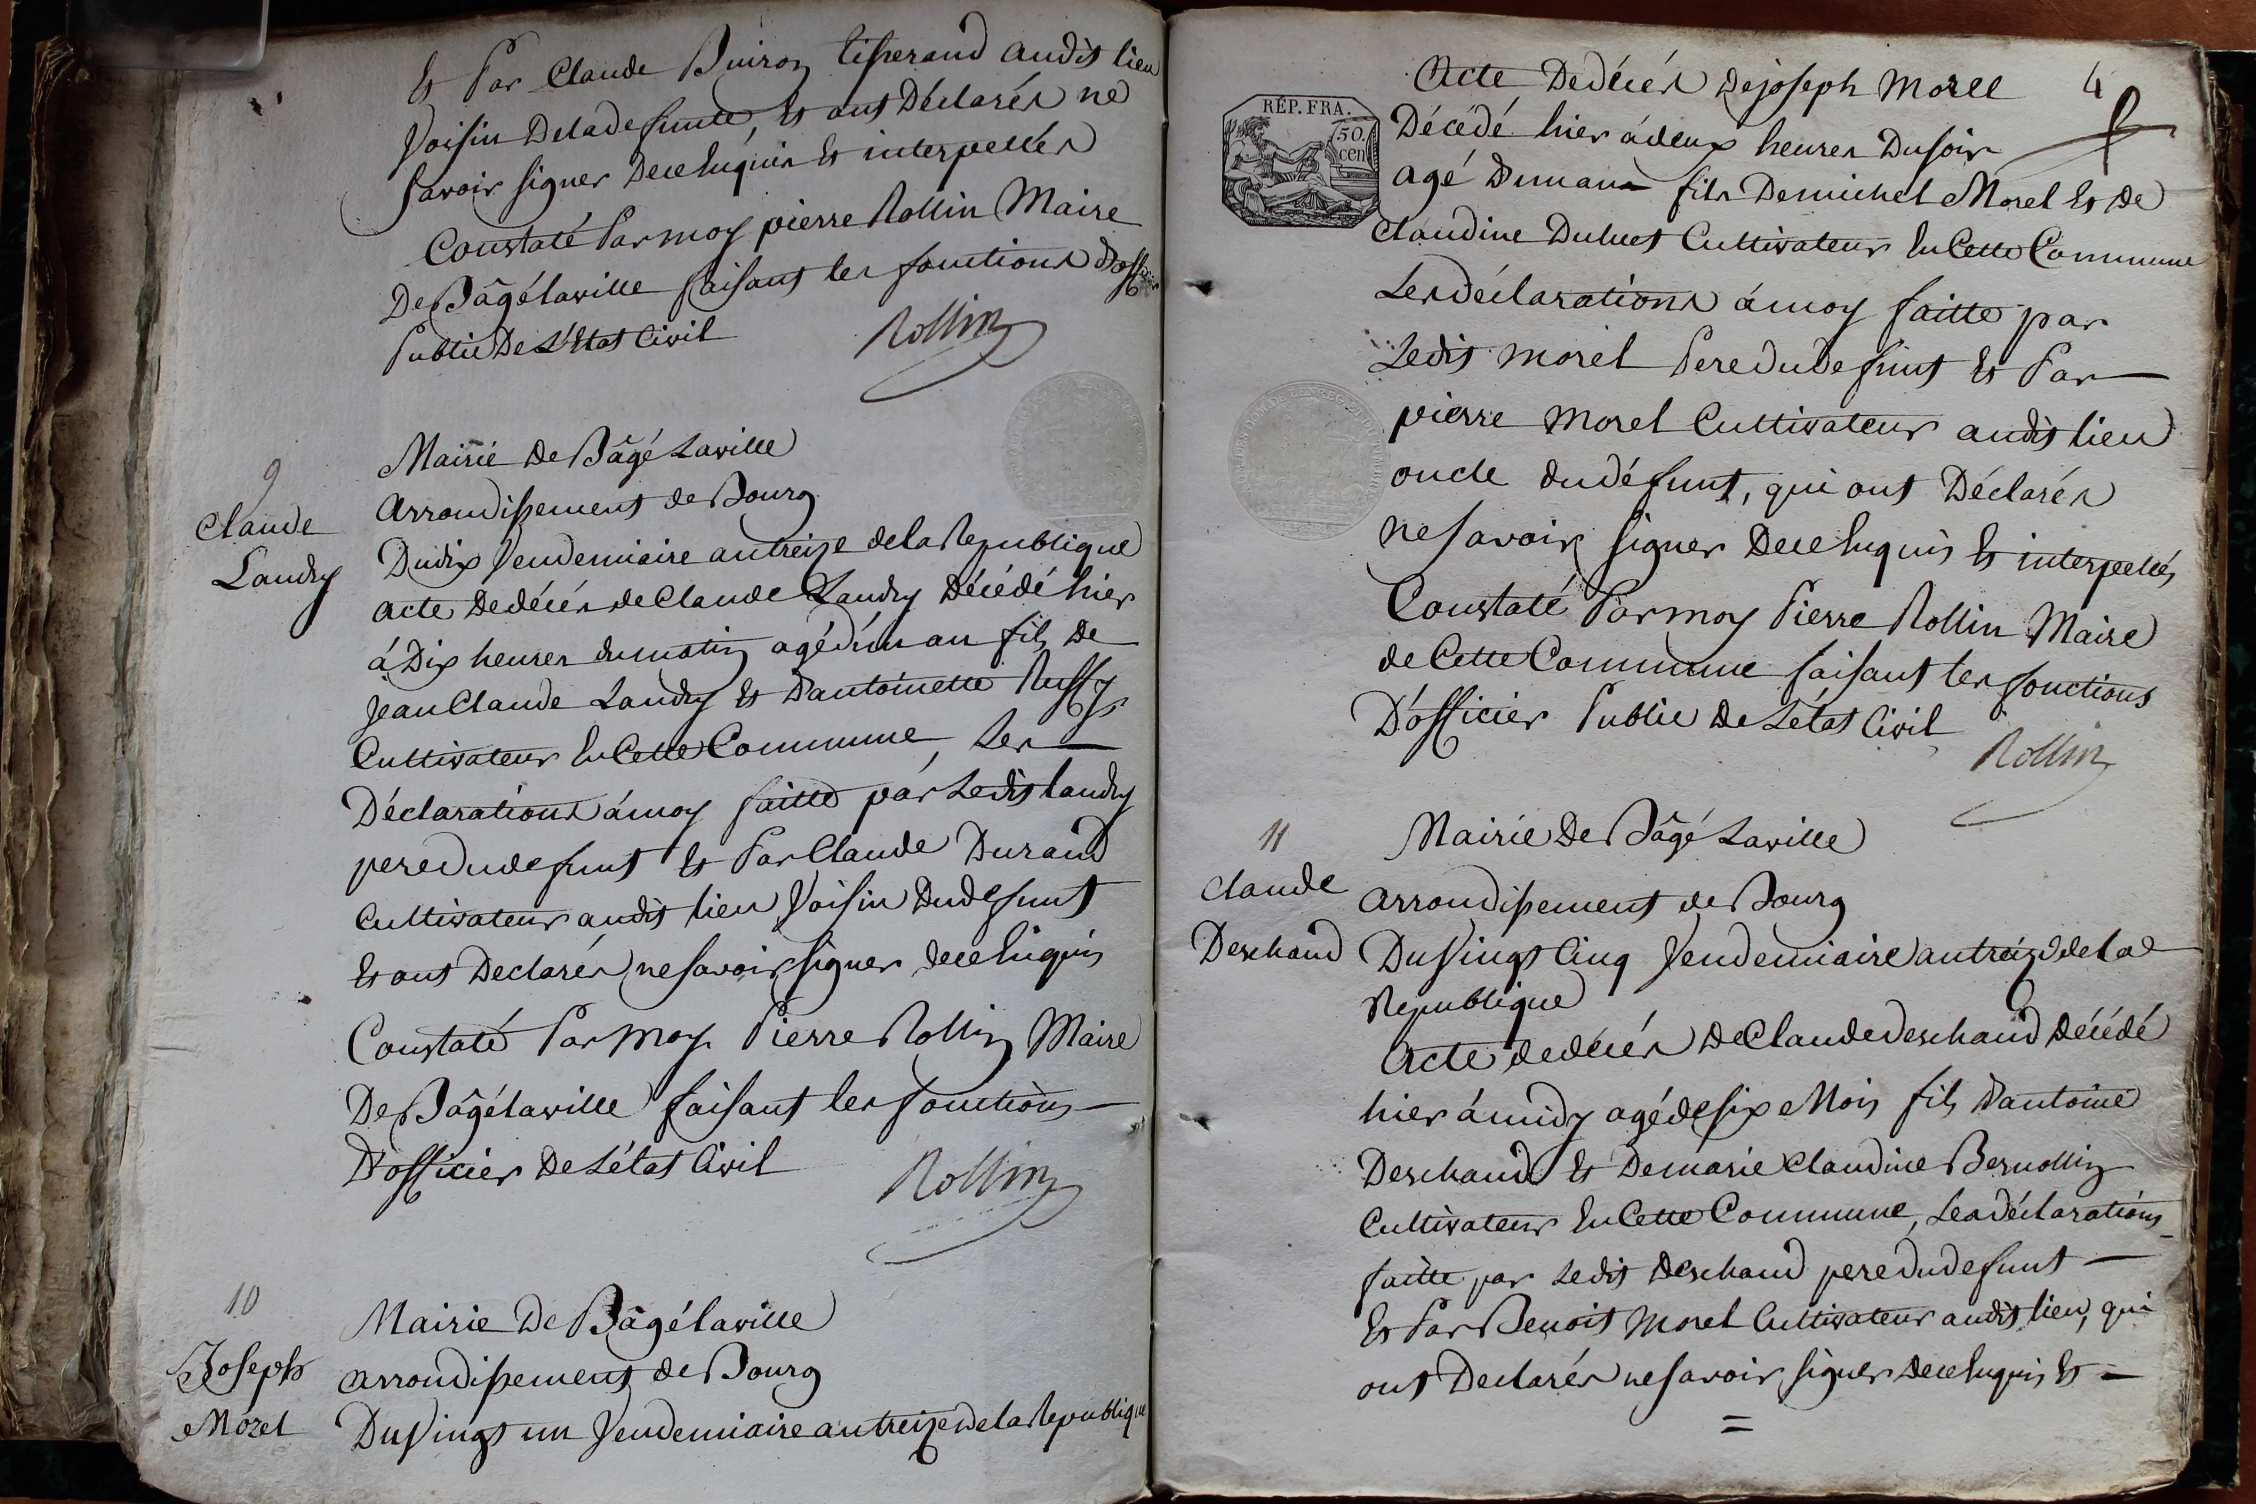 Et Par Claude Buiron tisserand audit lieu
Voisin Deladefunte, Et ont Déclarés ne
Savoir signer Dece Enquis Et interpellés
Constaté Par moy pierre Rollin Maire
De Bâgélaville faisant les fonctions D'officier
Public De L'Etat Civil
Rollin
9
Claude
Landry
Mairie De Bâgé Laville
Arrondissement de Bourg
Dudix Vendemiaire antreize dela Republique
acte Dedécés de Claude Landry Décédé hier
á Dix heures dumatin agéd'un an fils De
Jean Claude Landry Et D'antoinette Ruffy
Cultivateur En Cette Commune, Les
Déclarations ámoy faitte par Ledit Landry
peredudefunt Et Par Claude Durand
Cultivateur audit lieu Voisin Dudefunt
Et ont Declarés nesavoir signer dece Enquis
Constaté Par moy Pierre Rollin Maire
De Bâgélaville faisant les fonctions
D'officier De L'état Civil
Rollin
10
Joseph
Morel
Mairie De Bâgélaville
Arrondissement de Bourg
DuVingt un Vendemiaire antreize dela Republique
4
Acte Dedécés Dejoseph Morel
RÉP. FRA.
50.
cen.
Décédé hier ádeux heures Dusoir
agé Dunan fils Demichel Morel Et De
Claudine Duluet Cultivateur En Cette Commune
Lesdéclarations ámoy faitte par
Ledit Morel Peredudefunt Et Par
pierre Morel Cultivateur audit lieu
oncle dudéfunt, qui ont Déclarés
nesavoir signer Dece Enquis Et interpellés
Constaté Par moy Pierre Rollin Maire
de Cette Commune faisant les fonctions
D'officier Public De L'état Civil
Rollin
11
Claude
Deschand
Mairie De Bâgé Laville
Arrondissement de Bourg
DuVingt Cinq Vendemiaire antreize dela
Republique
Acte dedécés De Claude Deschand Décédé
hier ámidy agédesix Mois fils D'antoine
Deschand Et Demarie Claudine Bernollin
Cultivateur En Cette Commune, Les déclarations
faitte par Ledit Deschand peredudefunt
Et Par Benoit Morel Cultivateur audit lieu, qui
ont Declarés nesavoir signer Dece Enquis Et